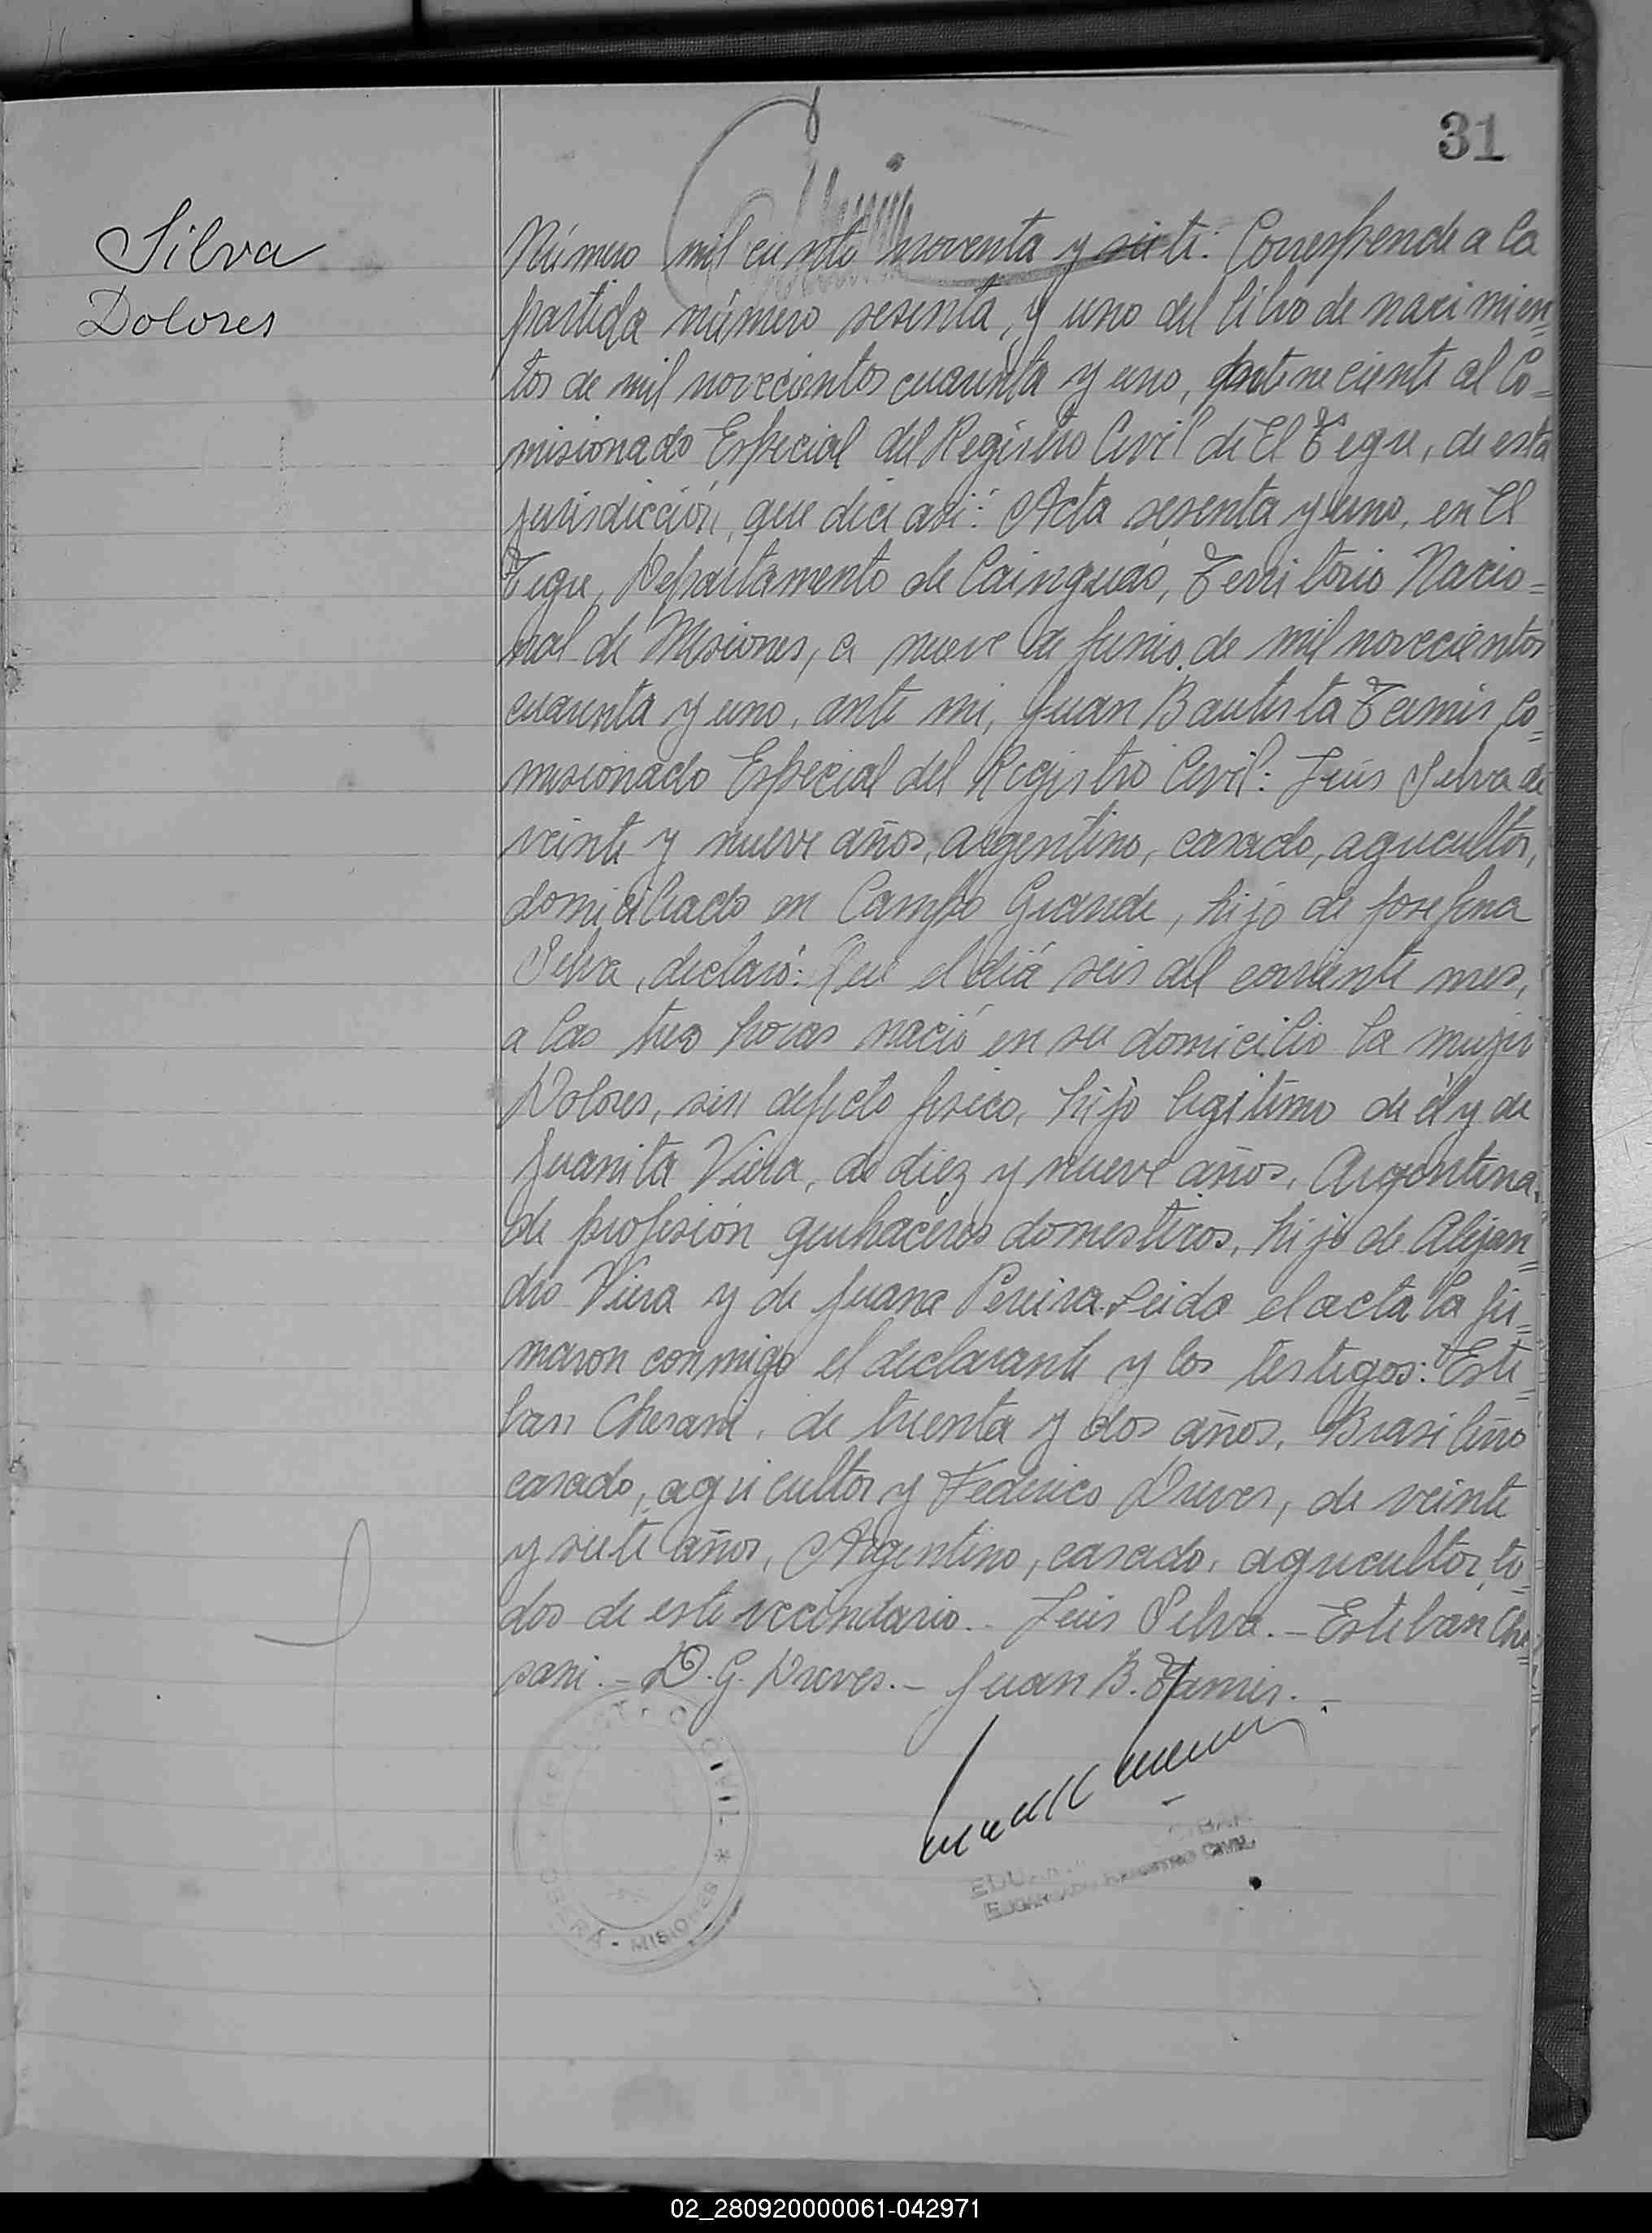 31
Silva
Dolores
Número mil ciento noventa y siete: Corresponde a la
partida número sesenta y uno del libro de nacimien=
tos de mil novecientos cuarenta y uno, perteneciente al Co=
misionado Especial del Registro Civil de El Tigre, de esta
jurisdicción, que dice así: Acta sesenta y uno, en El
Tigre, Departamento de Cainguás, Territorio Nacio=
nal de Misiones, a nueve de Junio de mil novecientos
cuarenta y uno, ante mi, Juan Bautista Tamis, Co=
misionado Especial del Registro Civil: Luis Silva de
veinte y nueve años, argentino, casado, agricultor,
domiciliado en Campo Grande, hijo de Josefina
Silva, declaró: Que el día seis del corriente mes,
a las tres horas nació en su domicilio la mujer
Dolores, sin defecto fisico, hijo legitimo de él y de
Juanita Viera, de diez y nueve años, Argentina,
de profesión quehaceros domesticos, hijo de Alejan=
dro Viera y de Juana Pereira. Leida el acta la fir=
maron conmigo el declarante y los testigos: Este=
ban Chesani, de treinta y dos años, Brasileño
casado, agricultor y Federico Dreves, de veinte
y siete años, Argentino, casado, agricultor, to=
dos de este vecindario.- Luis Silva.- Esteban Che=
sani.- D. G. Dreves.- Juan B. Tamis.-
CIVIL *
OBERÁ - MISIONES
REGISTRO CIVIL
02_280920000061-042971